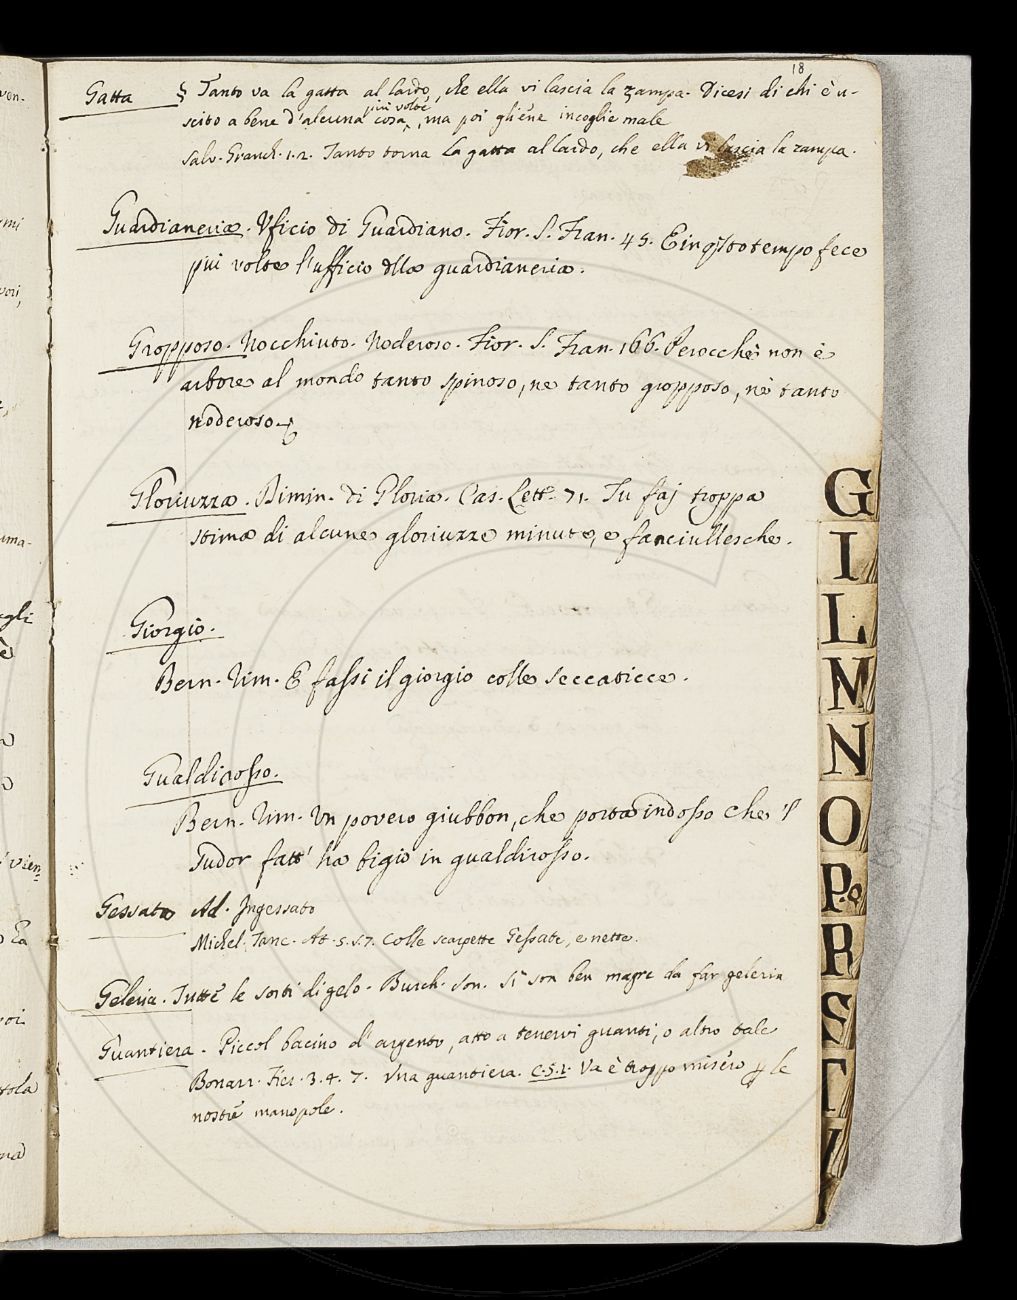 18
Gatta § Tanto va la gatta al lardo, che ella vi lascia la zampa. Dicesi di chi è u-
scito a bene d'alcuna cosa più volte, ma poi gliene incoglie male
Salv. Granch. 1.2. Tanto torna la gatta al lardo, che ella vi lascia la zampa.
Guardianeria. Vficio di Guardiano. Fior. S. Fran. 45. E in qsto tempo fece
più volte l'ufficio dlla guardianeria.
Gropposo. Nocchiuto. Noderoso. Fior. S. Fran. 166. Perocchè non è
arbore al mondo tanto spinoso, ne tanto gropposo, nè tanto
noderoso.
Gloriuzza. Dimin. di Gloria. Cas. Lett. 71. Tu faj troppa
stima di alcune gloriuzze minute, e fanciullesche.
Giorgio.
Bern. Rim. E fassi il giorgio colle seccaticce.
Gualdirosso.
Bern. Rim. Vn povero giubbon, che porta indosso che 'l
Sudor fatt' ha bigio in gualdirosso.
Gessato Ad. Ingessato
Michel. Tanc. At. 5. s. 7. Colle scarpette Gessate, e nette.
Geleria. Tutte le sorti di gelo. Burch. son. Si son ben magre da far geleria
Guantiera. Piccol bacino d'argento, atto a tenervi guanti, o altro tale
Bonarr. Fier. 3. 4. 7. Una guantiera. C.5.1. Va è troppo misero p le
nostre manopole.
G
I
L
M
N
O
P.
R
S
T